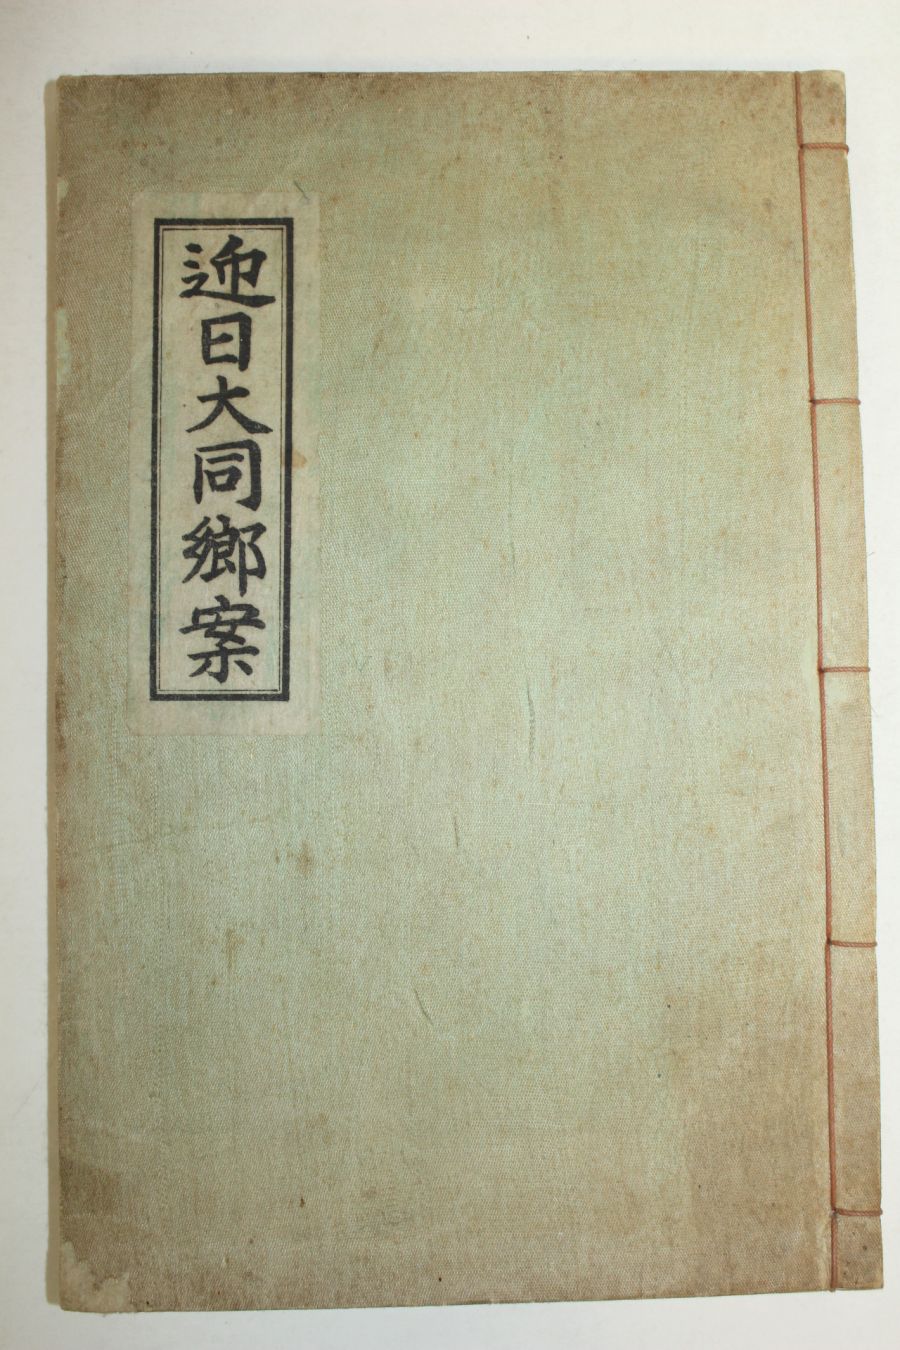 迎日大同鄉案